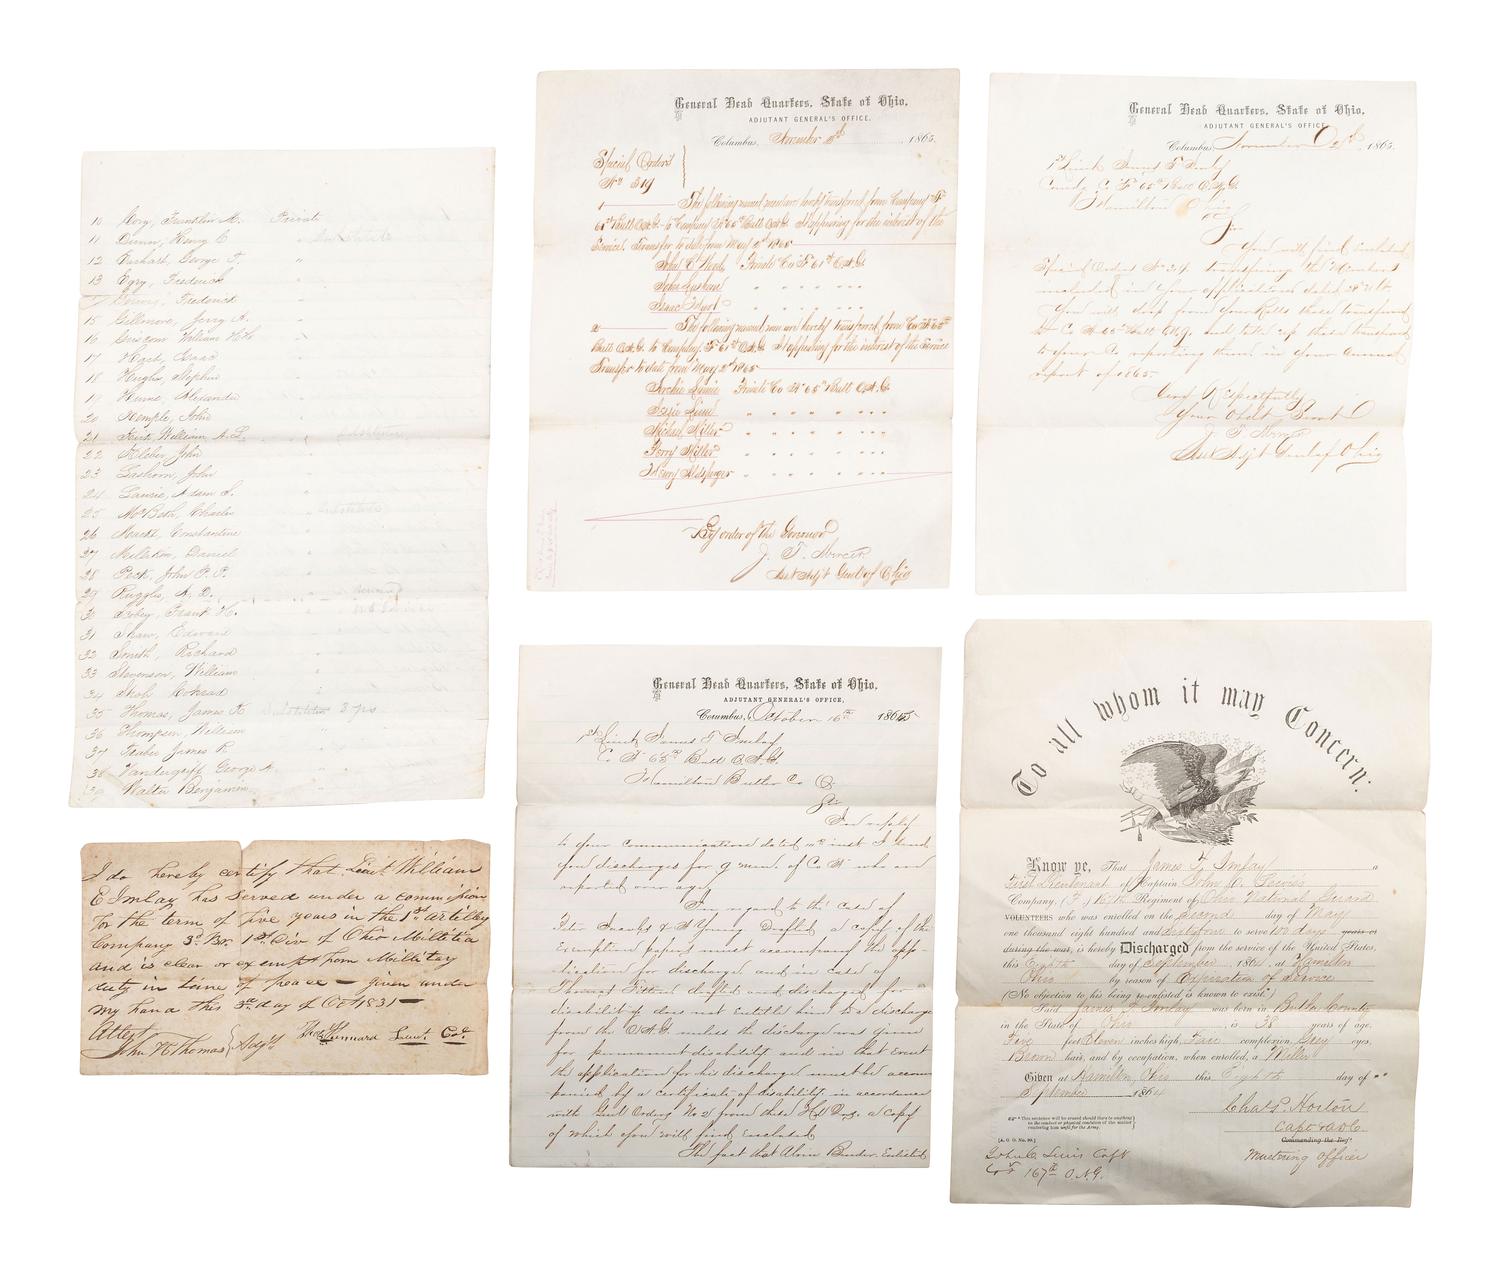 10 Cory, Franklin M. Private
11 Dunn, Henry C " Substitute
12 Earhart, George T. "
13 Egry, Frederick
Frederick
15 Gillmore, Jerry A.
16 Griscom William H H
17 Hart, Isaac
18 Hughs, Stephen
19 Hume, Alexander
20 Kemple, John
21 William A. L.
22 Kleber John
23 Lashorn, John
24 Laurie, Adam S.
25 McBeth, Charles Substitute
26 Constantine
27 Millikin, Daniel
28 Peck, John P. P.
29 Ruggles, A. D.
30 Scobey, Frank H.
31 Shaw, Edward
32 Smith, Richard
33 Stevenson, William
34 Conrad
35 Thomas, James K Substitute 3 yrs
36 Thompson, William
37 James R.
38 Vandergriff George A.
39 Walter Benjamin
I do hereby certify that Lieut William
E Imlay has served under a commission
for the term of five years in the 1st artillery
Company 3rd Br. 1st Div of Ohio Millitia
and is clear or exempt from Millitary
duty in time of peace — given under
my hand this 3rd day of Oct 1831 —
Attest
John K Thomas } Adjt Lieut Col.
General Head Quarters, State of Ohio,
ADJUTANT GENERAL'S OFFICE,
Columbus, November 1865.
Special Orders
No 319
1 — The following named members hereby transfered from Company F
65th Batt O.N.G. to Company H 65th Batt O.N.G. It appearing for the interest of the
Service. Transfer to date from May 2d 1865
John C Wood, Private Co F 61st O.N.G.
John
Isaac
2 — The following named men are hereby transfered from Co H 65th
Batt O.N.G. to Company F 61st O.N.G. It appearing for the interest of the Service
Transfer to date from May 2d 1865
Archie Private Co H 65th Batt O.N.G.
Michael Miller
Perry Miller
Henry
By order of the Governor
J. T. Mercer
Asst Adjt Genl of Ohio
General Head Quarters, State of Ohio,
ADJUTANT GENERAL'S OFFICE,
Columbus, November 1865.
1st Lieut James F Imlay
Comdg Co F 65th Batt O.N.G.
Hamilton Ohio
Sir
You will find inclosed
Special Orders transfering the Members
included in your applications dated
You will drop from your Rolls those transfered
to Co H 65 Batt O.N.G. and take up those transfered
to your Co reporting them in your annual
report of 1865.
Very Respectfully
Your Obdt Servt
J. T. Mercer
Asst Adjt Genl of Ohio
General Head Quarters, State of Ohio,
ADJUTANT GENERAL'S OFFICE,
Columbus, October 16th 1865
1st Lieut James F Imlay
Co F 65th Batt O.N.G.
Hamilton Butler Co O.
Sir
In reply
to your communication dated inst I send
you discharges for 9 men of Co who are
reported over age,
In regard to the case of
Peter Jacobs & Young Drafted a copy of the
Exemption papers must accompany the app-
lication for discharge and in case of
Thomas drafted and discharged for
disability does not entitle him to a discharge
from the O.N.G. unless the discharge was given
for permanent disability and in that Event
the application for his discharge must be accom
panied by a certificate of disability in accordance
with Genl Orders No 2 from these Hd Qrs. a copy
of which you will find Enclosed
The fact that Alvin Bender Enlisted
To all whom it may Concern:
Know ye, That James F. Imlay a
First Lieutenant of Captain John C. Lewis's
Company, (F,) 167th Regiment of Ohio National Guard
VOLUNTEERS who was enrolled on the second day of May
one thousand eight hundred and sixty four to serve 100 days years or
during the war, is hereby Discharged from the service of the United States,
this Eighth day of September, 1864, at Hamilton
Ohio by reason of Expiration of Service
(No objection to his being re-enlisted is known to exist.*)
Said James F. Imlay was born in Butler County
in the State of Ohio, is 38 years of age,
Five feet Eleven inches high, Fair complexion, Grey eyes,
Brown hair, and by occupation, when enrolled, a Miller
Given at Hamilton, Ohio this Eighth day of
September 1864
Chas. Horton
Capt
Commanding the Reg't
Mustering Officer
* This sentence will be erased should there be anything
in the conduct or physical condition of the soldier
rendering him unfit for the Army.
[A. G. O. No. 99.]
John C Lewis Capt
Co F 167th O.N.G.